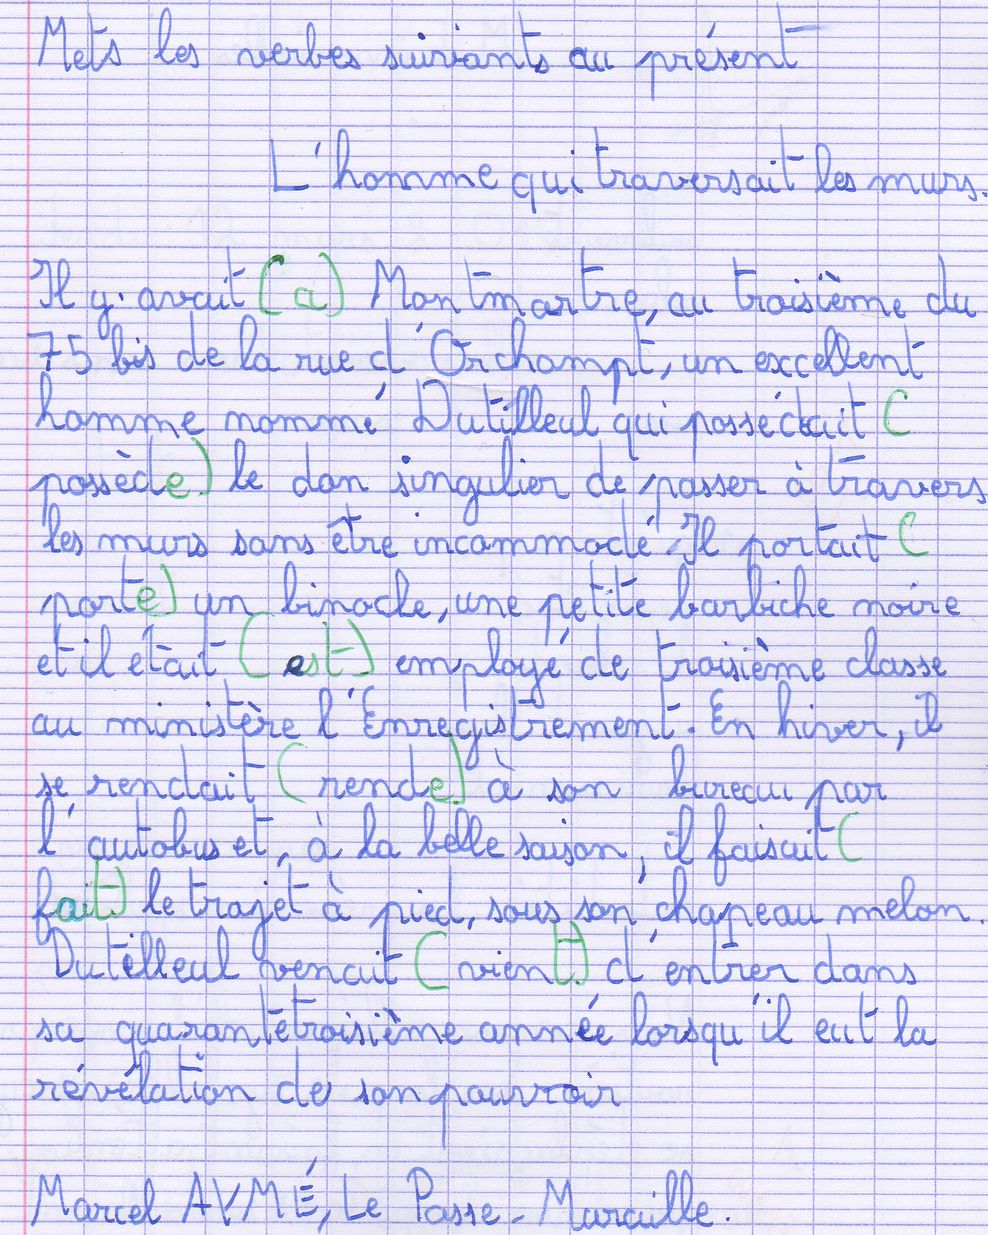 Mets les verbes suivants au présent
L'homme qui traversait les murs.
Il y avait (a) Montmartre, au troisième du
75 bis de la rue d'Orchampt, un excellent
homme nommé Dutilleul qui possédait (
possède) le don singulier de passer à travers
les murs sans être incommodé. Il portait (
porte) un binocle, une petite barbiche noire
et il était (est) employé de troisième classe
au ministère l'Enregistrement. En hiver, il
se rendait (rende) à son bureau par
l'autobus et, à la belle saison, il faisait (
fait) le trajet à pied, sous son chapeau melon.
Dutilleul venait (vient) d'entrer dans
sa quarantetroisième année lorsqu'il eut la
révélation de son pouvoir
Marcel AYMÉ, Le Passe-Muraille.